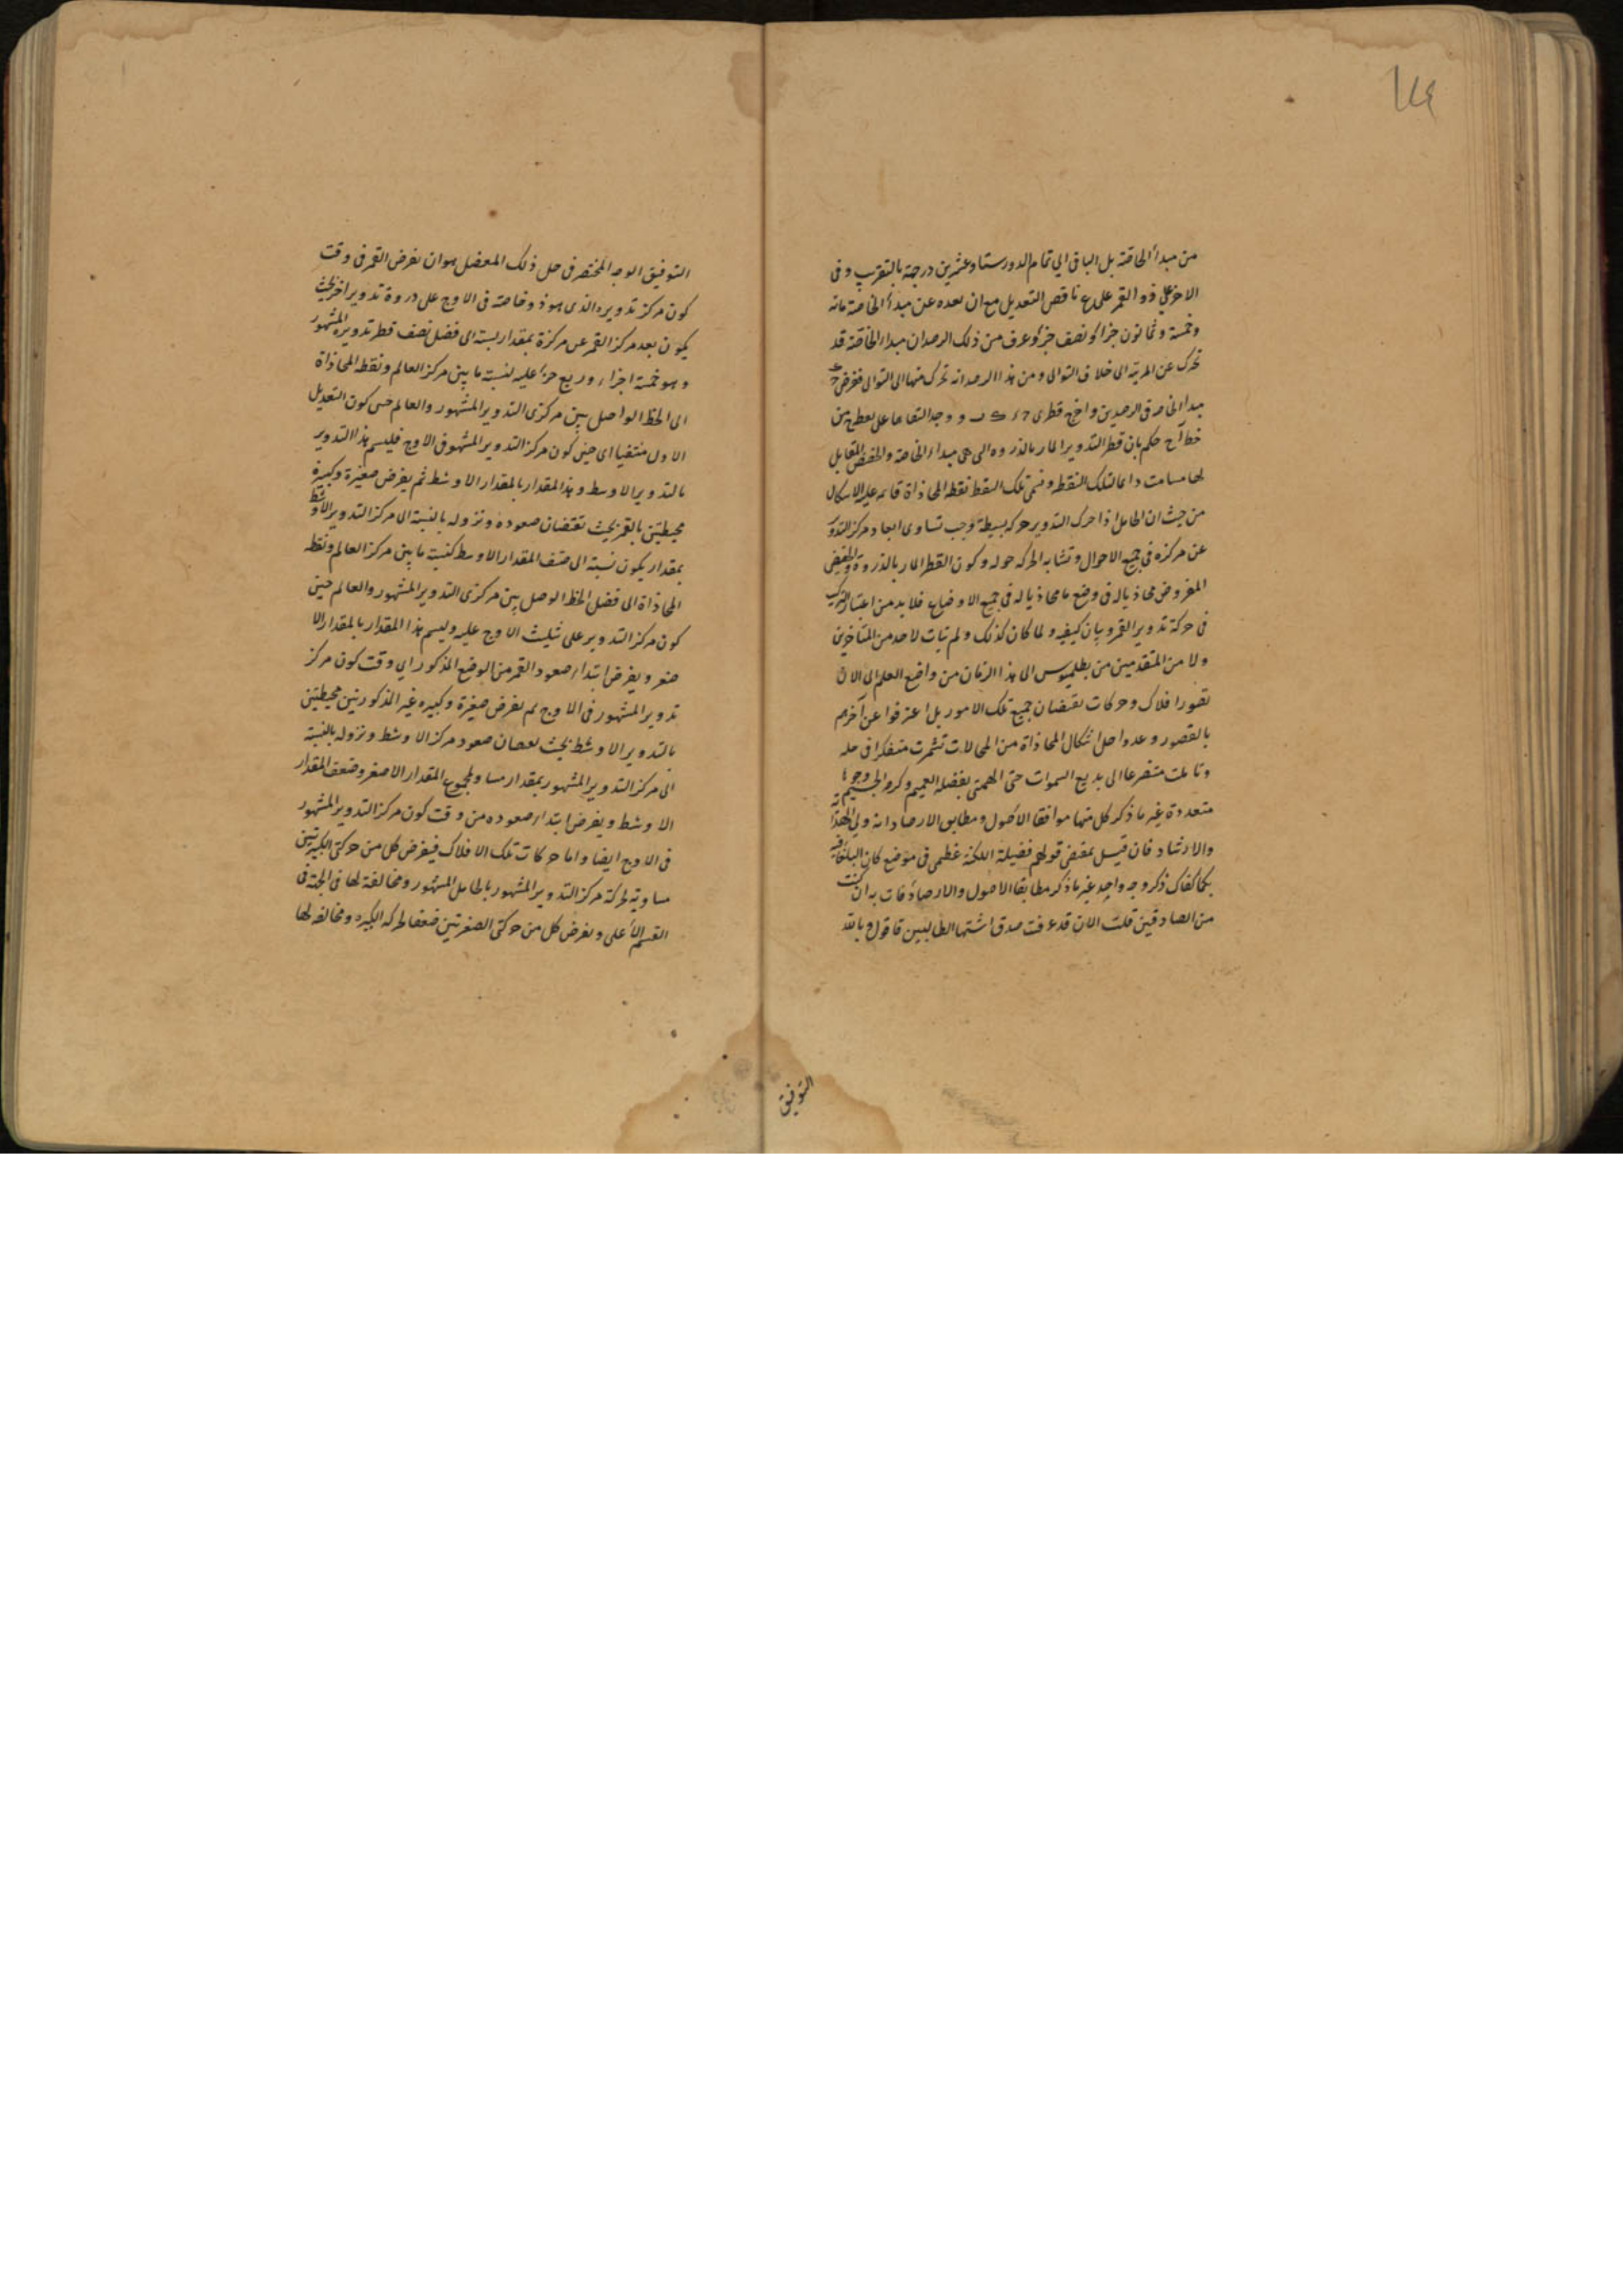 ١٧٤
من مبدأ الخاصة بل الباقي الى تمام الدور ستا وعشرين درجة بالتقريب وفي
الاخر على ذو والقمر على ع ناقص التعديل مع ان بعده عن مبدأ الخاصة مائة
وخمسة وثمانون جزأ ونصف جزء وعرف من ذلك الرصد ان مبدأ الخاصة قد
تحرك عن المرئية الى خلاف التوالي ومن هذا الرصد انه تحرك منها الى التوالي ففرض
مبدأ الخاصة في الرصدين واخرج قطري ووجد التقاءهما على نقطة من
خط ا ح حكم بان قطر التدوير المار بالذروة التي هي مبدأ الخاصة والحضيض المقابل
لها مسامت دائما لتلك النقطة وتسمى تلك النقطة نقطة المحاذاة قائمة عليه الاشكال
من حيث ان الحامل اذا حرك التدوير حركة بسيطة وجب تساوي ابعاد مركز التدوير
عن مركزه في جميع الاحوال وتشابه الحركة حوله وكون القطر المار بالذروة والحضيض
المفروض محاذيا له في وضع ما محاذيا له في جميع الاوضاع فلابد من اعتبار التركيب
في حركة تدوير القمر وبيان كيفيته ولما كان كذلك ولم تيات لاحد من المتأخرين
ولا من المتقدمين من بطلميوس الى هذا الزمان من واضع العلم الى الان
تصور افلاك وحركات تقتضيان جميع تلك الامور بل اعترفوا عن اخرهم
بالقصور وعدوا حل اشكال المحاذاة من المحالات تشمرت متفكرا في حله
وتأملت متضرعا الى بديع السموات حتى الهمني بفضله العميم وكرمه الجسيم وجوها
متعددة غير ما ذكر كل منها موافقا الاصول ومطابق الارصاد انه ولي الهداية
والارشاد فان قيل بمقتضى قولهم فضيلة اللكنة عظمى في موضع كان البلاغة فيه
بكما كفاك ذكر وجه واحد غير ما ذكر مطابقا الاصول والارصاد فات به ان كنت
من الصادقين قلت الان قد عرفت صدق اشتها الطالبين فاقول وبالله
التوفيق
التوفيق الوجه المختصر في حل ذلك المعضل هو ان نفرض القمر في وقت
كون مركز تدويره الذي هو ذو خاصة في الاوج على ذروة تدوير اخر بحيث
يكون بعد مركز القمر عن مركزه بمقدار نسبته الى فضل نصف قطر تدويره المشهور
وهو خمسة اجزاء وربع جزء عليه لنسبة ما بين مركز العالم ونقطة المحاذاة
الى الخط الواصل بين مركزي التدوير المشهور والعالم حين كون التعديل
الاول منتفيا اي حين كون مركز التدوير المشهور في الاوج فليسم هذا التدوير
بالتدوير الاوسط وهذا المقدار بالمقدار الاوسط ثم يفرض صغيرة وكبيرة
محيطتين بالقمر بحيث تقتضيان صعوده ونزوله بالنسبة الى مركز التدوير الاوسط
بمقدار يكون نسبته الى ضعف المقدار الاوسط كنسبة ما بين مركز العالم ونقطة
المحاذاة الى فضل الخط الوصل بين مركزي التدوير المشهور والعالم حين
كون مركز التدوير على تثليث الاوج عليه وليسم هذا المقدار بالمقدار الا
صغر ويفرض ابتداء صعود القمر من الوضع المذكور اي وقت كون مركز
تدوير المشهور في الاوج ثم نفرض صغيرة وكبيرة غير المذكورتين محيطتين
بالتدوير الاوسط بحيث تقتضيان صعود مركز الاوسط ونزوله بالنسبة
الى مركز التدوير المشهور بمقدار مساو لمجموع المقدار الاصغر وضعف المقدار
الاوسط ويفرض ابتداء صعوده من وقت كون مركز التدوير المشهور
في الاوج ايضا واما حركات تلك الافلاك فيفرض كل من حركتي الكبيرتين
مساوية لحركة مركز التدوير المشهور بالحامل المشهور ومخالفة لها في الجهة في
القسم الأعلى ونفرض كل من حركتي الصغيرتين ضعفا لحركة الكبيرة ومخالفة لها